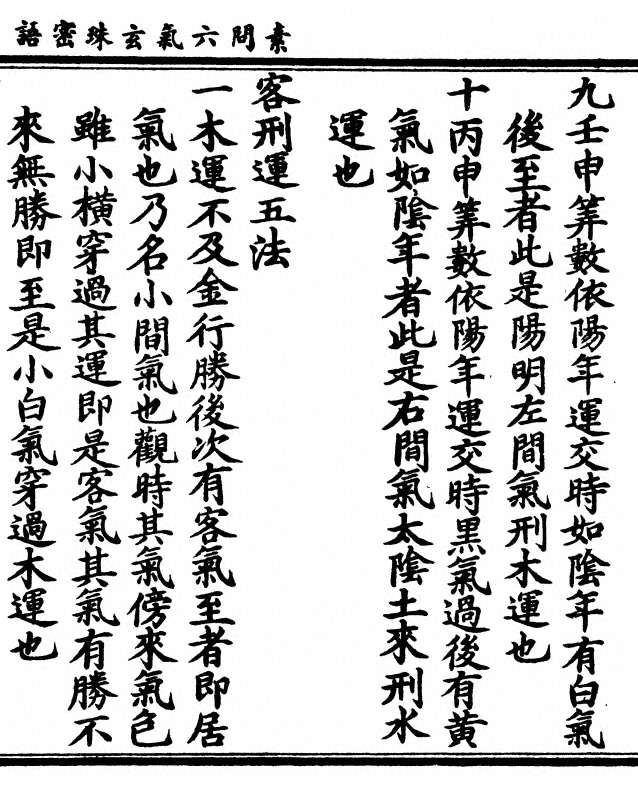 素問六氣玄珠密語
九壬申筭數依陽年運交時如陰年有白氣
後至者此是陽明左間氣刑木運也
十丙申筭數依陽年運交時黑氣過後有黃
氣如陰年者此是右間氣太陰土來刑水
運也
客刑運五法
一木運不及金行勝後次有客氣至者即居
氣也乃名小間氣也觀時其氣傍來氣色
雖小橫穿過其運即是客氣其氣有勝不
來無勝即至是小白氣穿過木運也